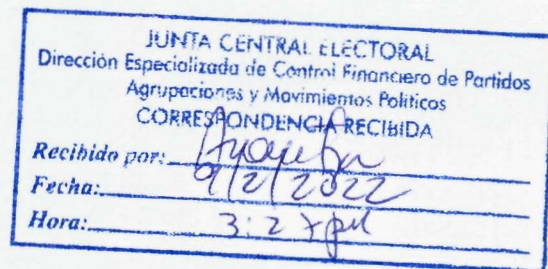 JUNTA CENTRAL ELECTORAL
Dirección Especializada de Control Financiero de Partidos
Agrupaciones y Movimientos Políticos
CORRESPONDENCIA RECIBIDA
Recibido por:
Fecha: 9/2/2022
Hora: 3:27 pm